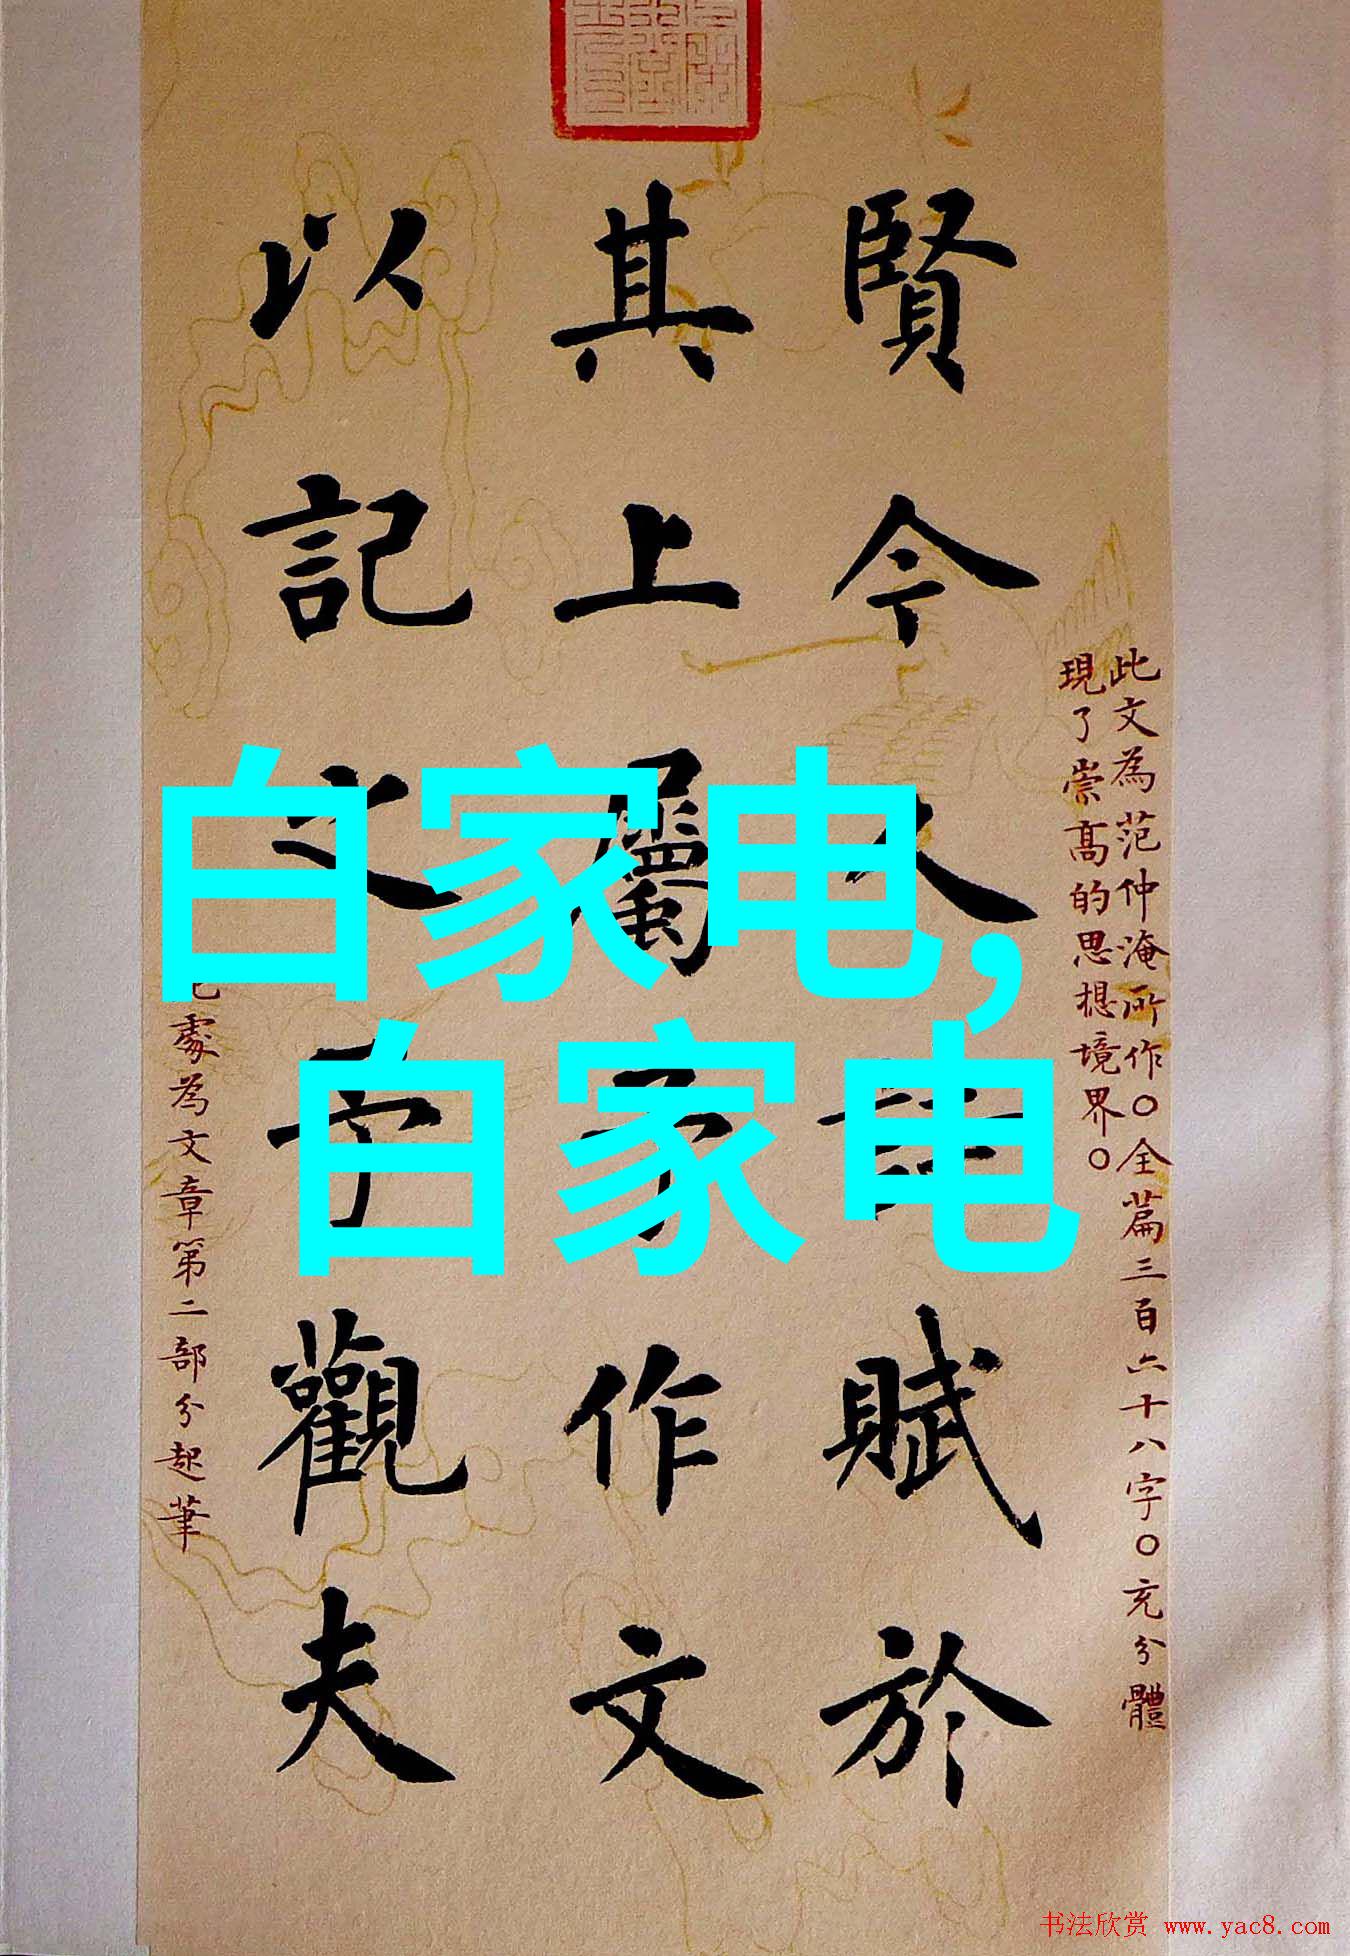 此文為范仲淹所作○全篇三百六十八字○充分體
現了崇高的思想境界○
賢今人賦於
其上屬予作文
以記之予觀夫
處為文章第二部分起筆
白家电,
白家电
书法欣赏 www.yac8.com